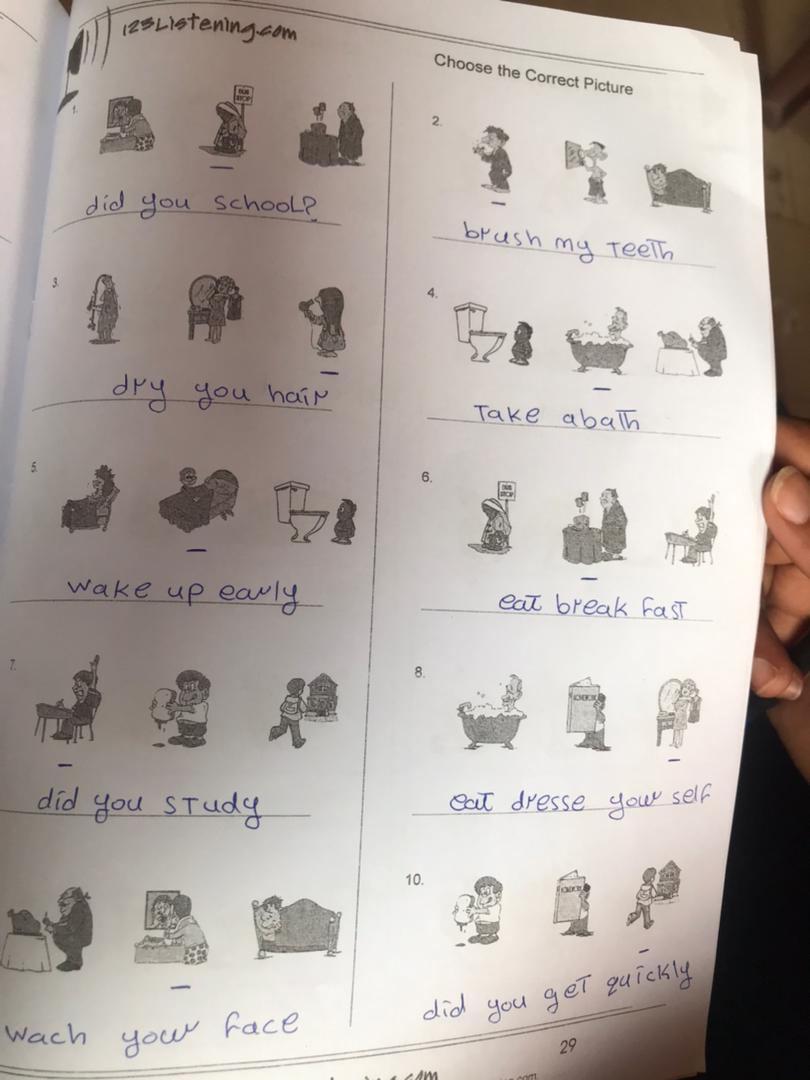 123Listening.com
Choose the Correct Picture
1.
BUS STOP
did you school?
2.
brush my teeth
3.
dry you hair
4.
Take abath
5.
wake up early
6.
BUS STOP
eat break fast
7.
did you study
8.
HOMEWORK
eat dresse your self
wach your face
10.
HOMEWORK
did you get quickly
29